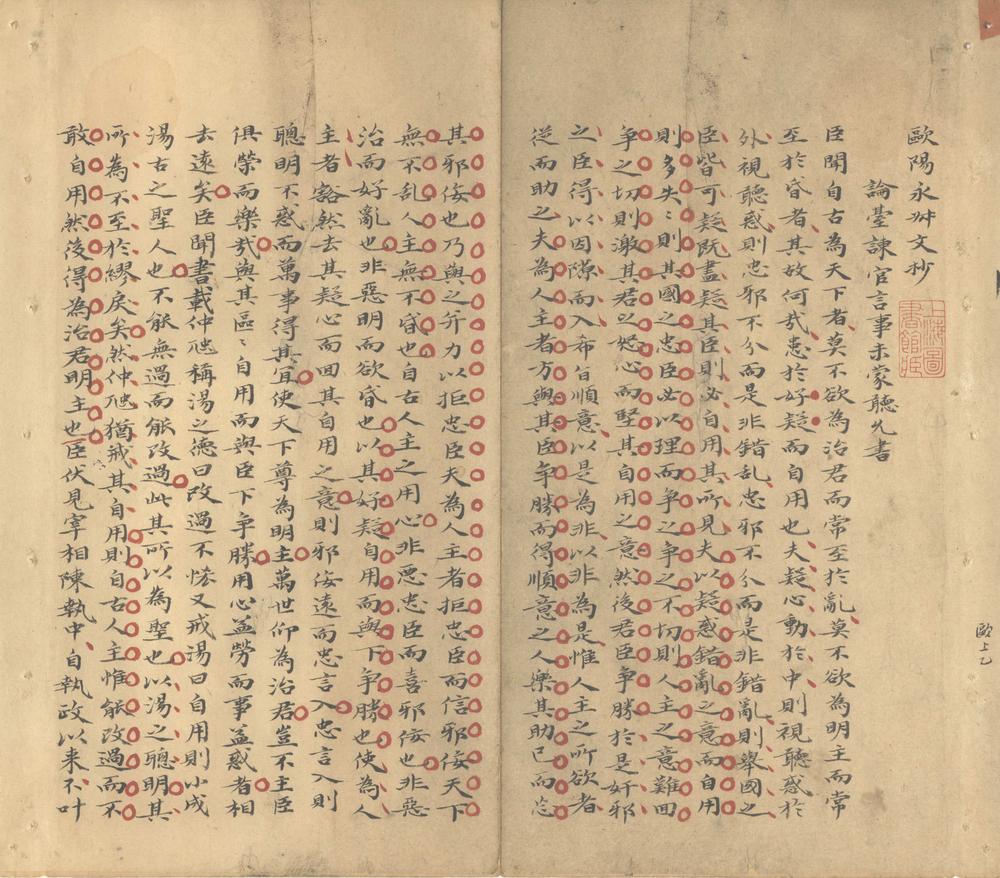 歐陽永叔文抄
上海圖書館藏
論臺諫官言事未蒙聽允書
臣聞自古為天下者莫不欲為治君而常至於亂莫不欲為明主而常
至於昏者其故何哉患於好疑而自用也夫疑心動於中則視聽惑於
外視聽惑則忠邪不分而是非錯乱忠邪不分而是非錯亂則舉國之
臣皆可疑既盡疑其臣則必自用其所見夫以疑惑錯亂之意而自用
則多失〻則其國之忠臣必以理而爭之爭之不切則人主之意難回
爭之切則激其君之怒心而堅其自用之意然後君臣爭勝於是奸邪
之臣得以因隙而入希旨順意以是為非以非為是惟人主之所欲者
從而助之夫為人主者方與其臣爭勝而得順意之人樂其助己而忘
其邪佞也乃與之并力以拒忠臣夫為人主者拒忠臣而信邪佞天下
無不亂人主無不昏也自古人主之用心非惡忠臣而喜邪佞也非惡
治而好亂也非惡明而欲昏也以其好疑自用而與下爭勝也使為人
主者豁然去其疑心而回其自用之意則邪佞遠而忠言入忠言入則
聰明不惑而萬事得其宜使天下尊為明主萬世仰為治君豈不主臣
俱榮而樂哉與其區〻自用而與臣下爭勝用心益勞而事益惑者相
去遠矣臣聞書載仲虺稱湯之德曰改過不悋又戒湯曰自用則小成
湯古之聖人也不能無過而能改過此其所以為聖也以湯之聰明其
所為不至於繆戾矣然仲虺猶戒其自用則自古人主惟能改過而不
敢自用然後得為治君明主也臣伏見宰相陳執中自執政以來不叶
歐上乙